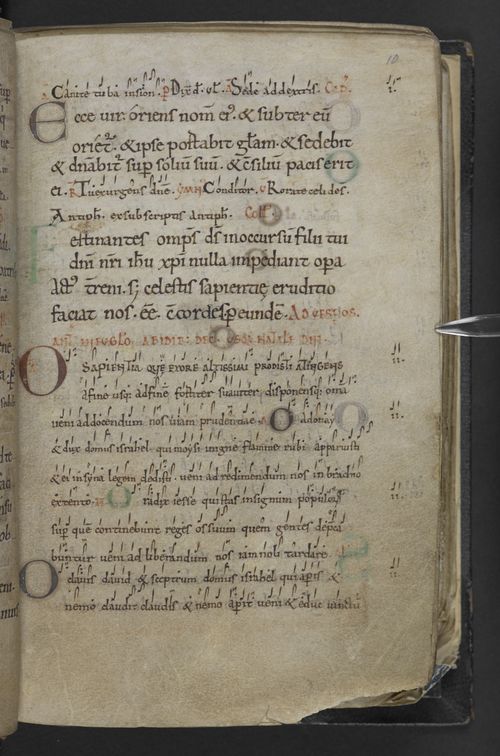 10
Canite tuba insion. P Dix̄ d. ul. A Sede addextris. Cap.
Ecce uir. oriens nom̄ ei'. & subter eū
oriet̄. & ipse portabit gl̄am. & sedebit
& dn̄abit sup soliū suū. & c̄siliū pacis erit
ei. R Tuexurgens dn̄e. ymn Conditor. V Rorate celi des.
Antiph. ex subscriptis antiph. Coll.
Festinantes omps ds̄ inoccursū filii tui
dn̄i nr̄i ihū xp̄i nulla impediant opa
act' t̄reni. s; celestis sapientię eruditio
faciat nos. ēē. c̄cordes
O SAPIENTIA QUE EXORE ALTISSIMI PRODISTI ATINGENS
afine usq; adfinē fortiter suauiter. disponensq; om̄a
ueni addocendum nos uiam prudentiae. O adonay
& dux domus israhel. qui moysi inigne flammae rubi apparuisti
& ei insyna legem dedisti. ueni ad redimendum nos inbrachio
extento. O radix iesse qui stas insignum populorū
sup quē continebunt reges os suum quem gentes depca
buntur ueni ad liberandum nos iam noli tardare.
O clauis dauid & sceptrum domus israhel qui aperis &
nemo claudit claudis & nemo aperit ueni & educ uinctū